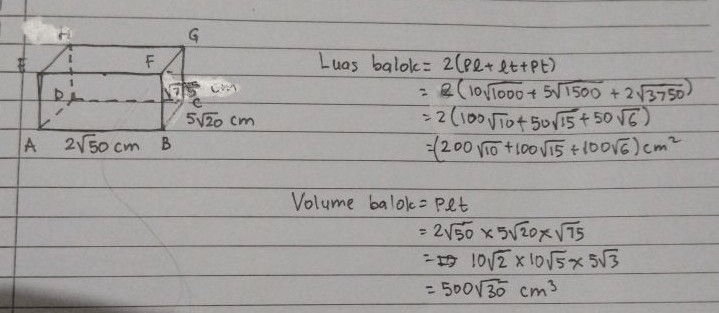 H G
E F
√75 cm
D C
5√20 cm
A 2√50 cm B
Luas balok = 2(pl + lt + pt)
= 2(10√1000 + 5√1500 + 2√3750)
= 2(100√10 + 50√15 + 50√6)
= (200√10 + 100√15 + 100√6) cm²
Volume balok = plt
= 2√50 × 5√20 × √75
= 10√2 × 10√5 × 5√3
= 500√30 cm³